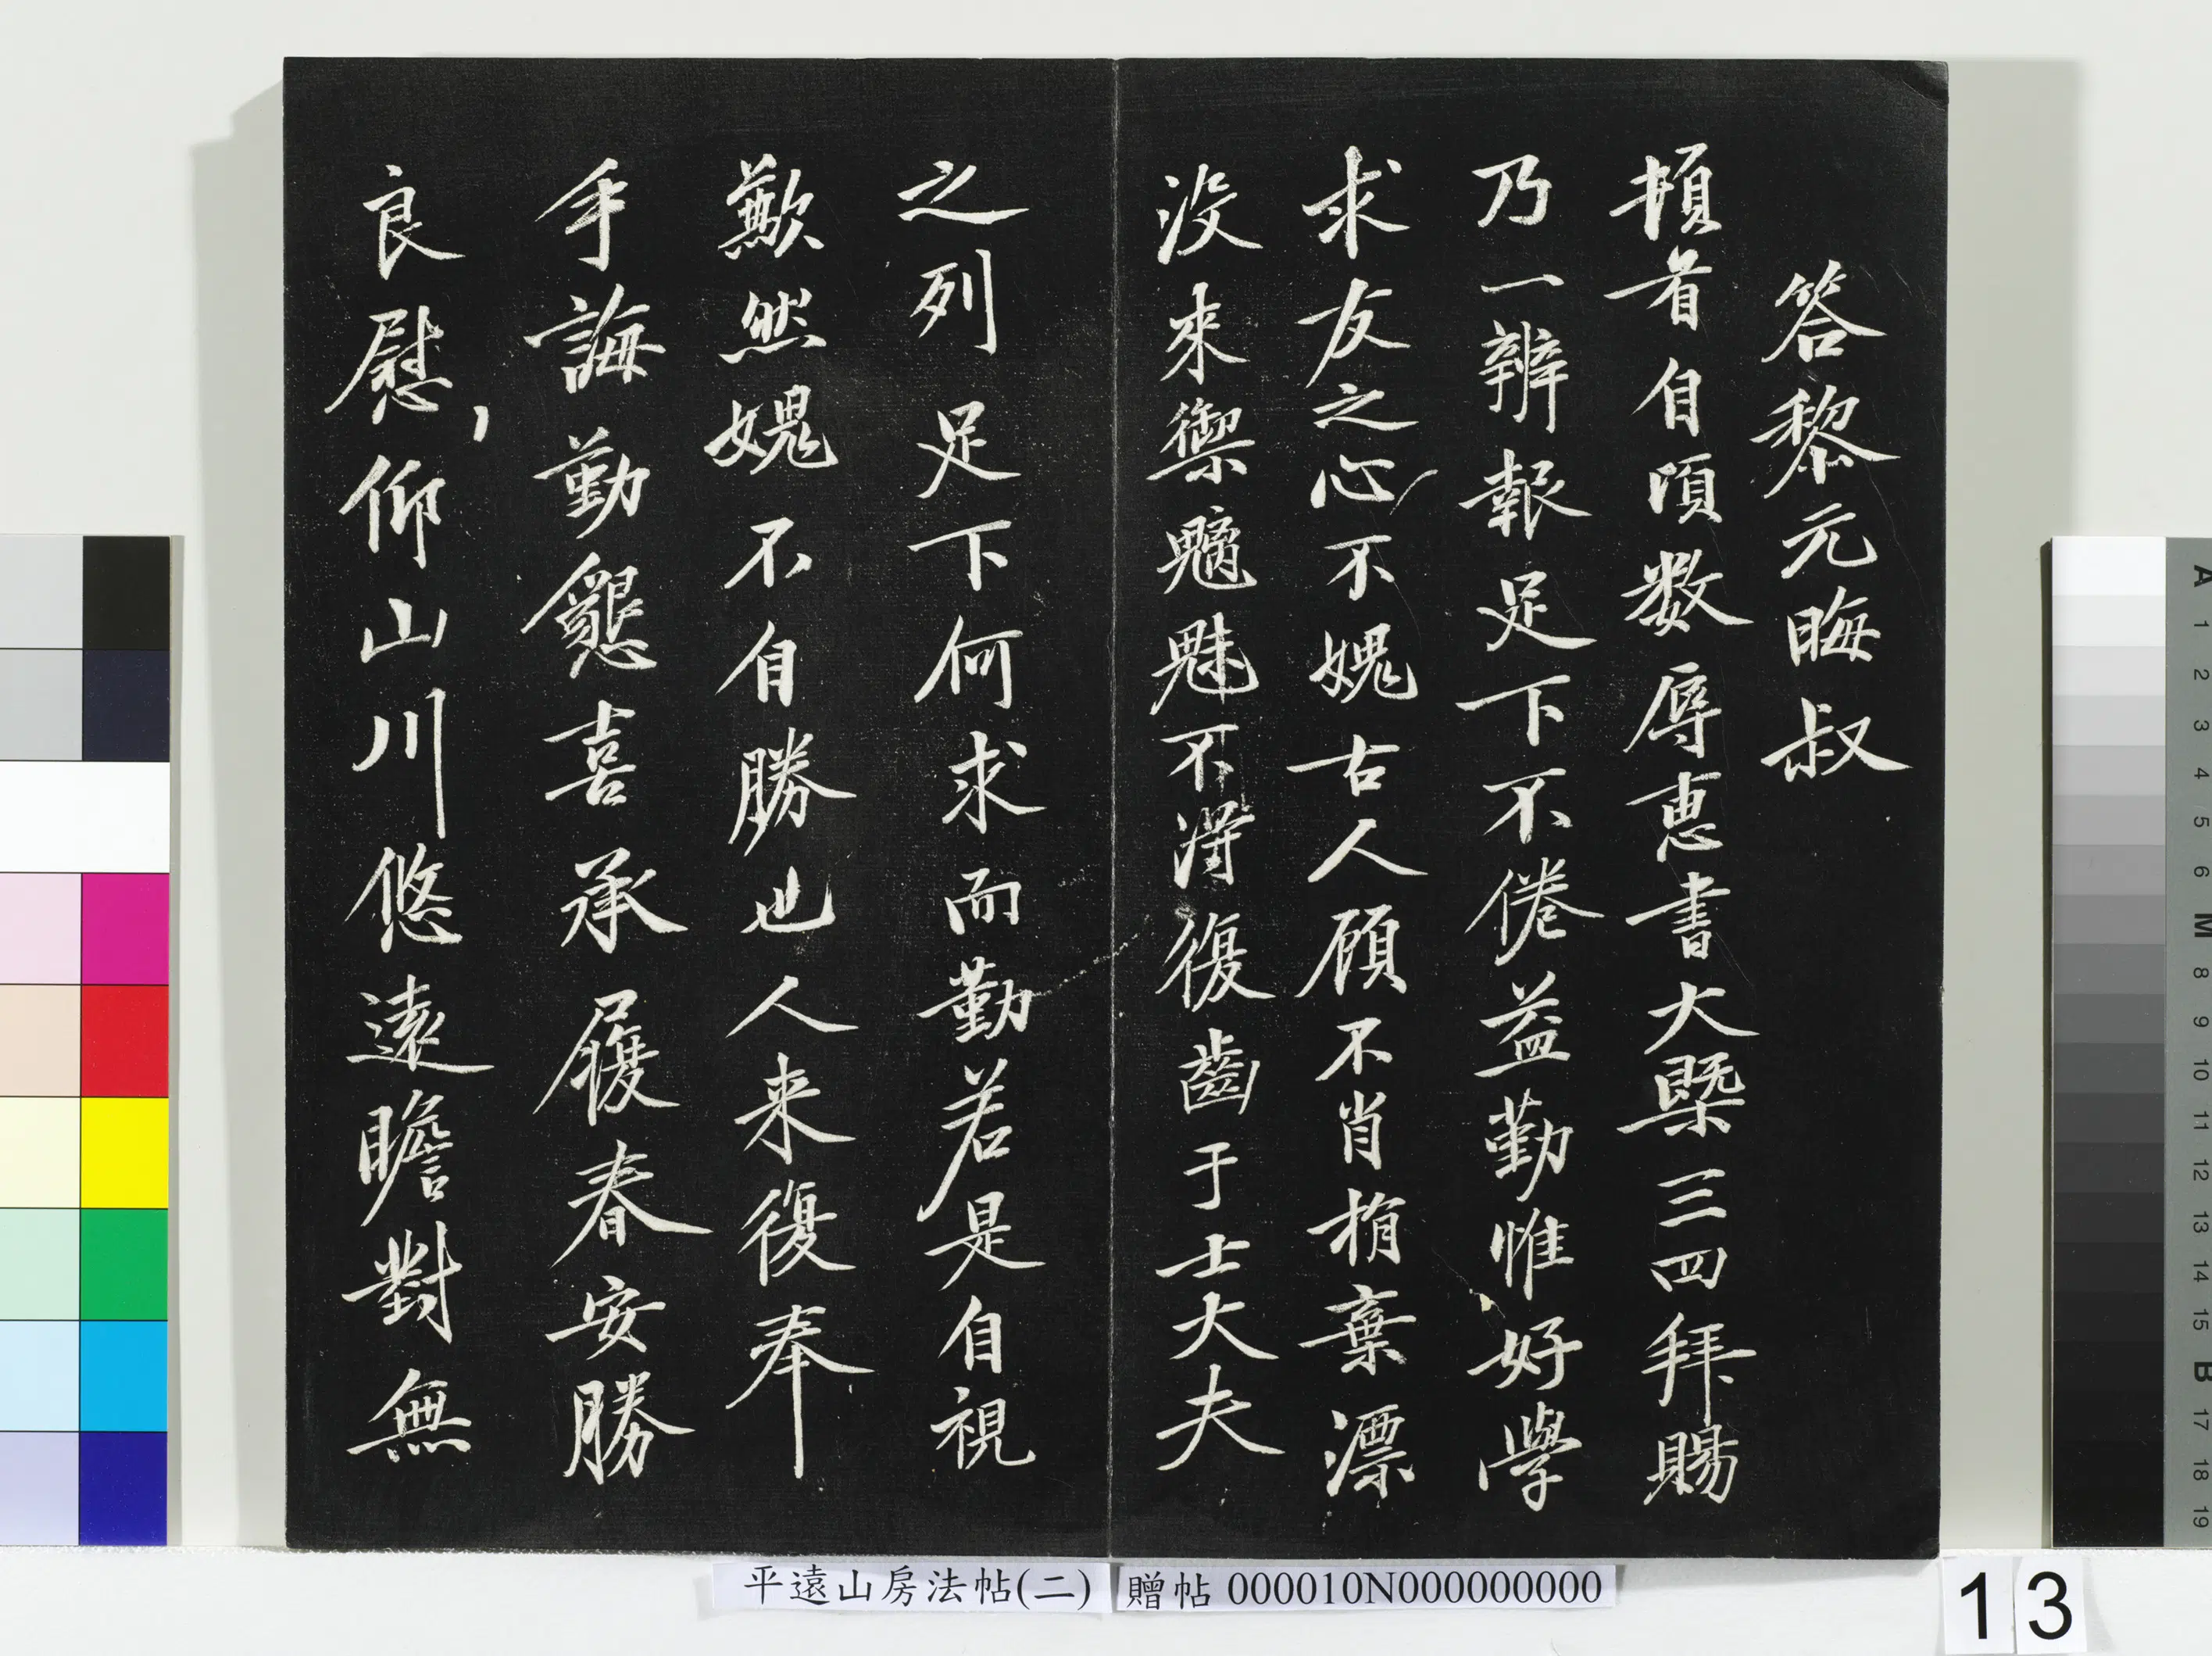 答黎元晦叔
頓首自頃数辱惠書大槩三四拜賜
乃一辨報足下不倦益勤惟好學
求友之心不媿古人顧不肖捐棄漂
没来禦魑魅不得復齒于士大夫
之列足下何求而勤若是自視
歉然媿不自勝也人来復奉
手誨勤懇喜承履春安勝
良慰仰山川悠遠瞻對無
平遠山房法帖(二)
贈帖 000010N000000000
13
A 1 2 3 4 5 6 M 8 9 10 11 12 13 14 15 B 17 18 19